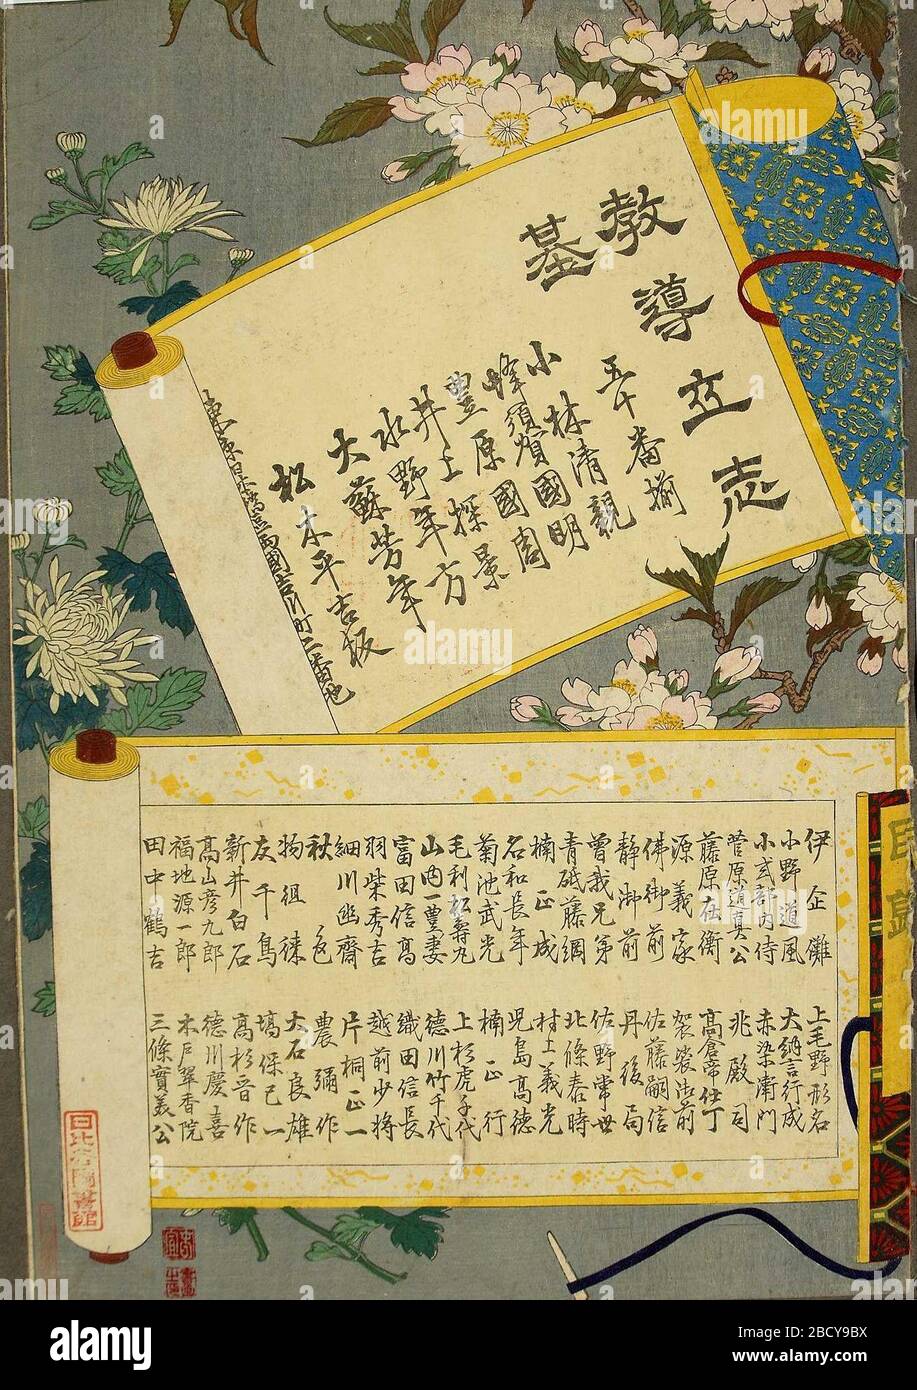 教導立志
基
五十番揃
小林清親
蜂須賀國明
豊原國周
井上探景
水野年方
大蘇芳年
松木平吉板
東京日本橋區兩國吉川町二番地
目錄
伊企儺
小野道風
小式部内侍
菅原道真公
藤原在衡
源義家
佛御前
静御前
曽我兄弟
青砥藤綱
楠正成
名和長年
菊池武光
毛利松寿丸
山内一豊妻
富田信高
羽柴秀吉
細川幽齋
秋色
物徂徠
友千鳥
新井白石
高山彦九郎
福地源一郎
田中鶴吉
上毛野形名
大納言行成
赤染衛門
兆殿司
高倉帝仕丁
袈裟御前
佐藤嗣信
丹後局
佐野常世
北條泰時
村上義光
児島高徳
楠正行
上杉虎千代
徳川竹千代
織田信長
越前少将
片桐正一
農彌作
大石良雄
塙保己一
高杉晋作
徳川慶喜
木戸翠香院
三條實美公
日比谷圖書館
alamy
Image ID: 2BCY9BX
www.alamy.com